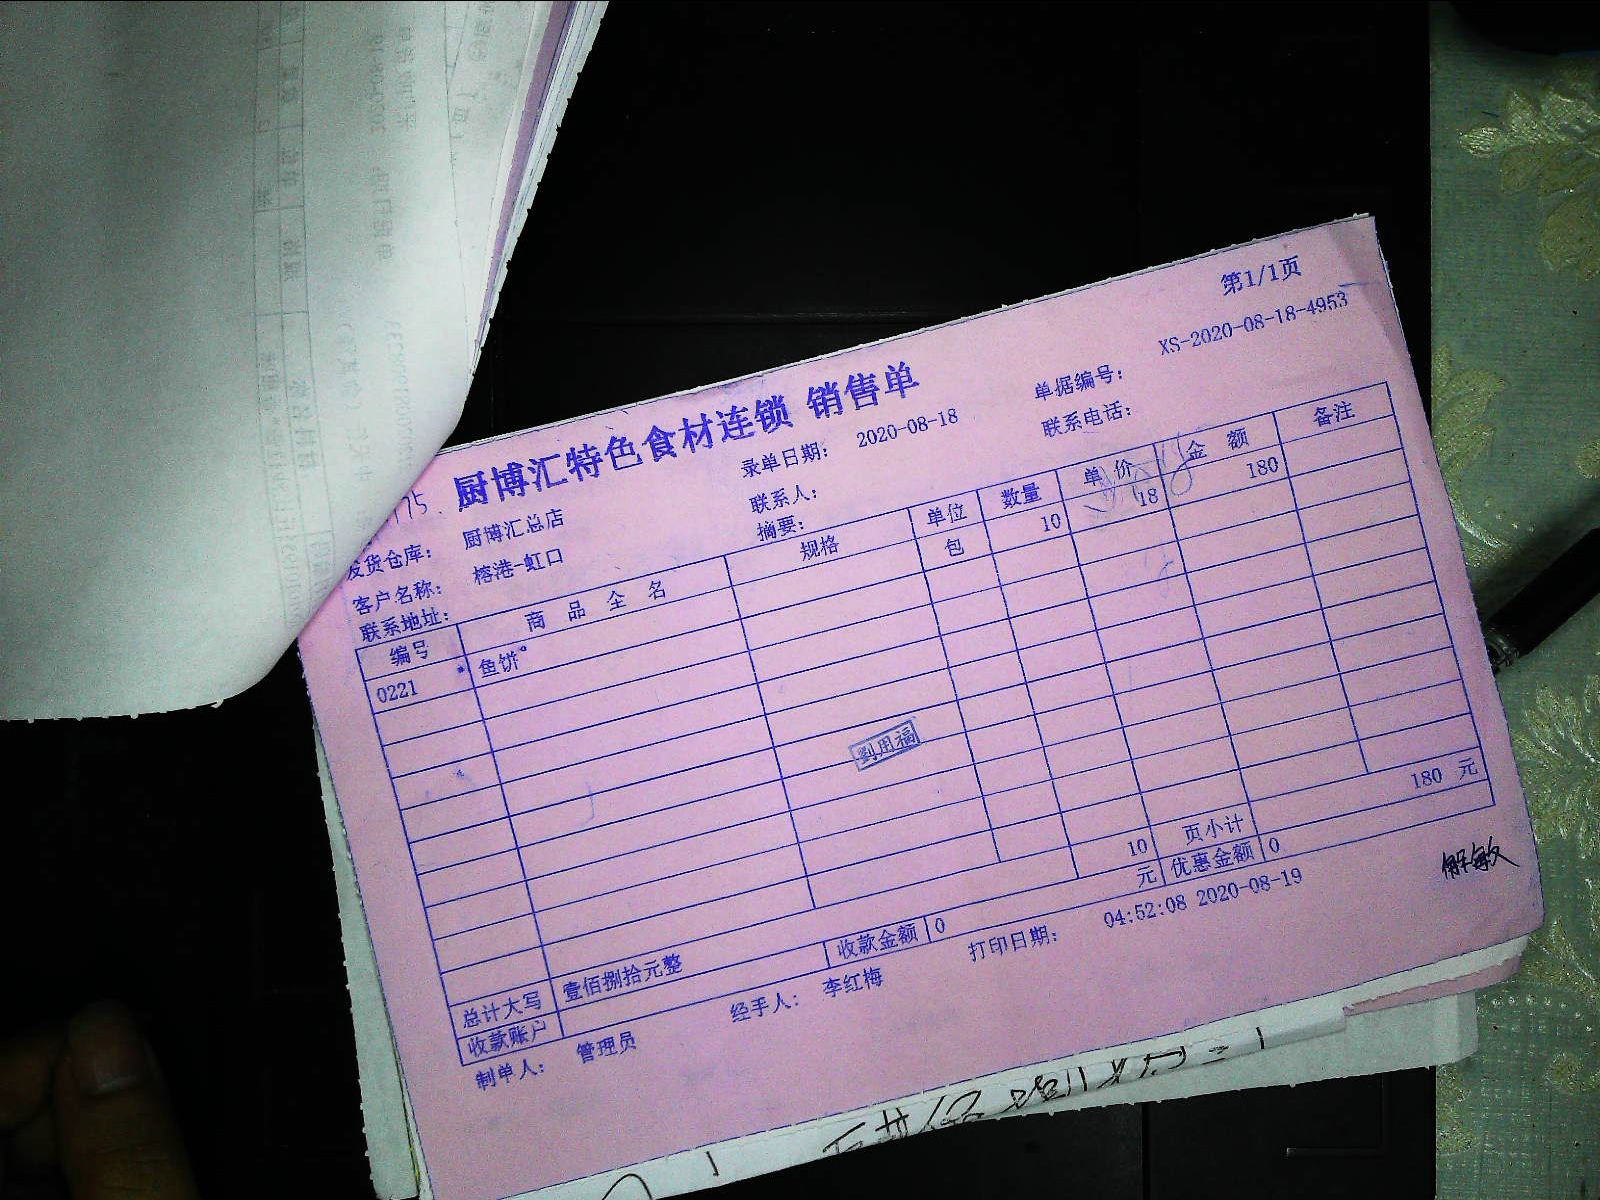 第1/1页
厨博汇特色食材连锁 销售单
发货仓库： 厨博汇总店 录单日期： 2020-08-18 单据编号： XS-2020-08-18-4953
客户名称： 榕港-虹口 联系人： 联系电话：
联系地址： 摘要：
编号 商品全名 规格 单位 数量 单价 金额 备注
0221 鱼饼 包 10 18 180
劉用福
10 页小计 180 元
总计大写 壹佰捌拾元整 收款金额 0 元 优惠金额 0
收款账户
制单人： 管理员 经手人： 李红梅 打印日期： 04:52:08 2020-08-19
解敏